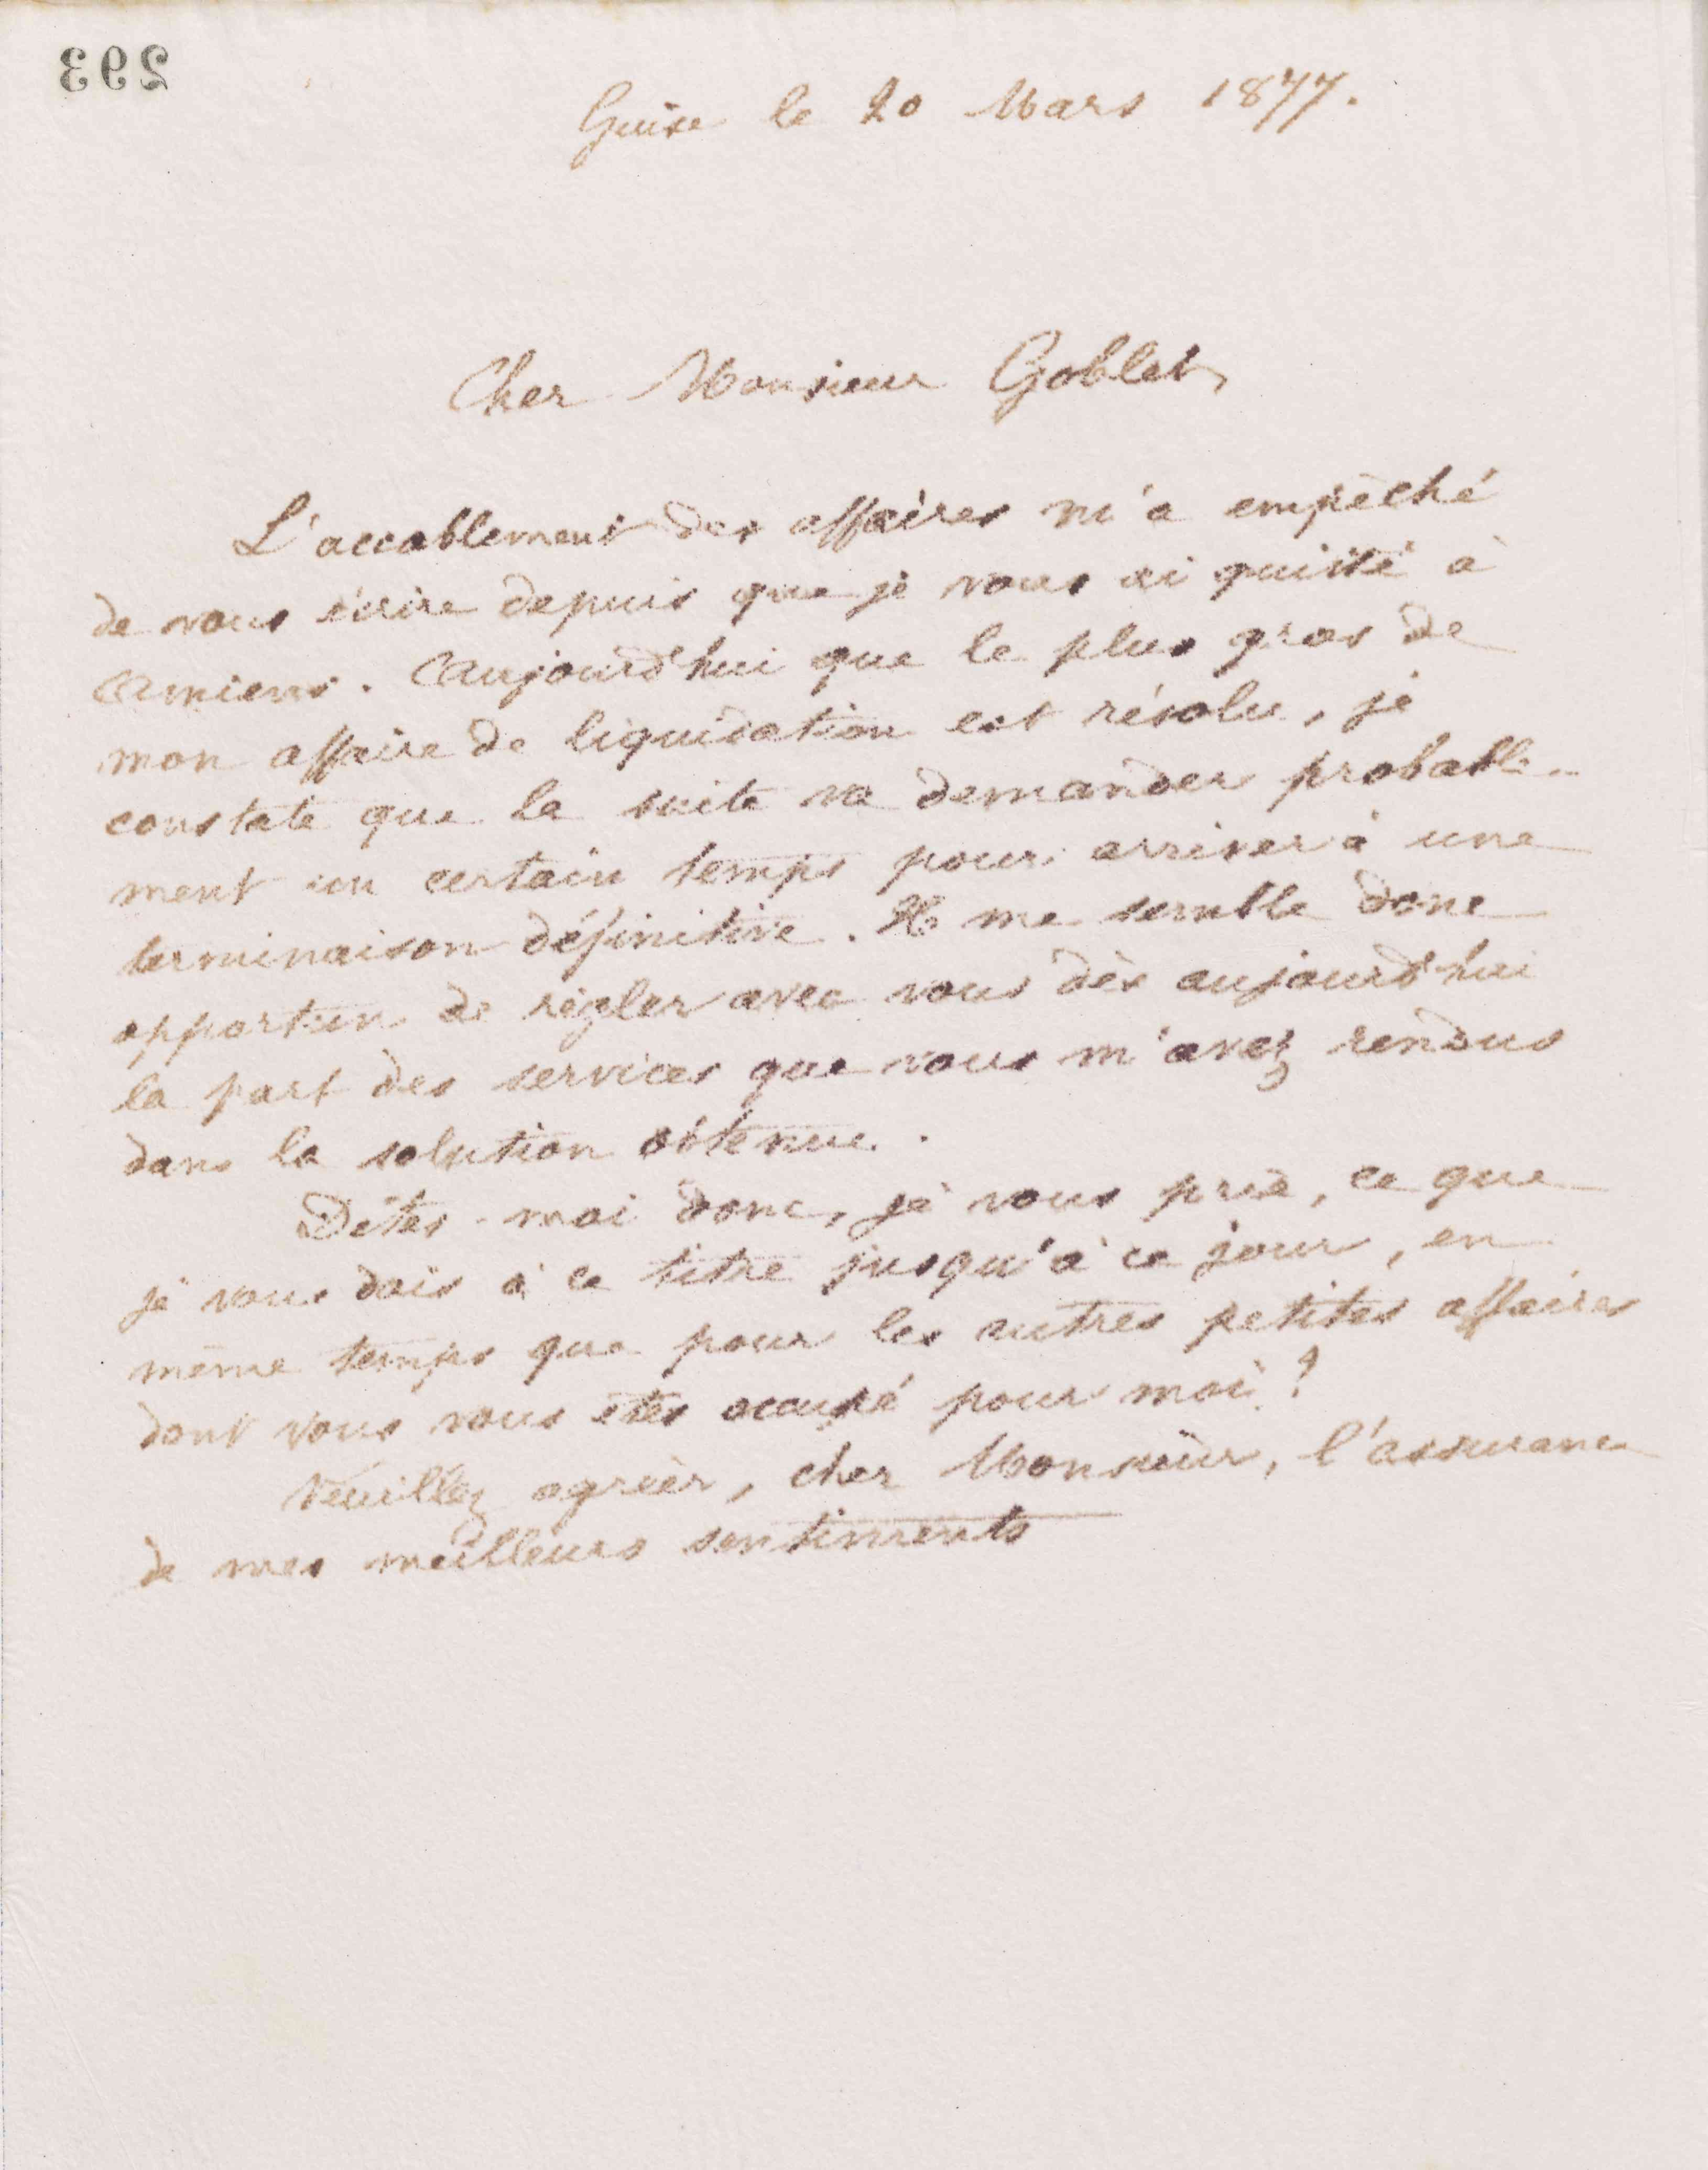 293
Guise le 20 Mars 1877.
Cher Monsieur Goblet,
L'accablement des affaires m'a empêché
de vous écrire depuis que je vous ai quitté à
Amiens. Aujourd'hui que le plus gros de
mon affaire de liquidation est résolu, je
constate que la suite va demander probable-
ment un certain temps pour arriver à une
terminaison définitive. Il me semble donc
opportun de régler avec vous dès aujourd'hui
la part des services que vous m'avez rendus
dans la solution obtenue.
Dites-moi donc, je vous prie, ce que
je vous dois à ce titre jusqu'à ce jour, en
même temps que pour les autres petites affaires
dont vous vous êtes occupé pour moi ?
Veuillez agréer, cher Monsieur, l'assurance
de mes meilleurs sentiments